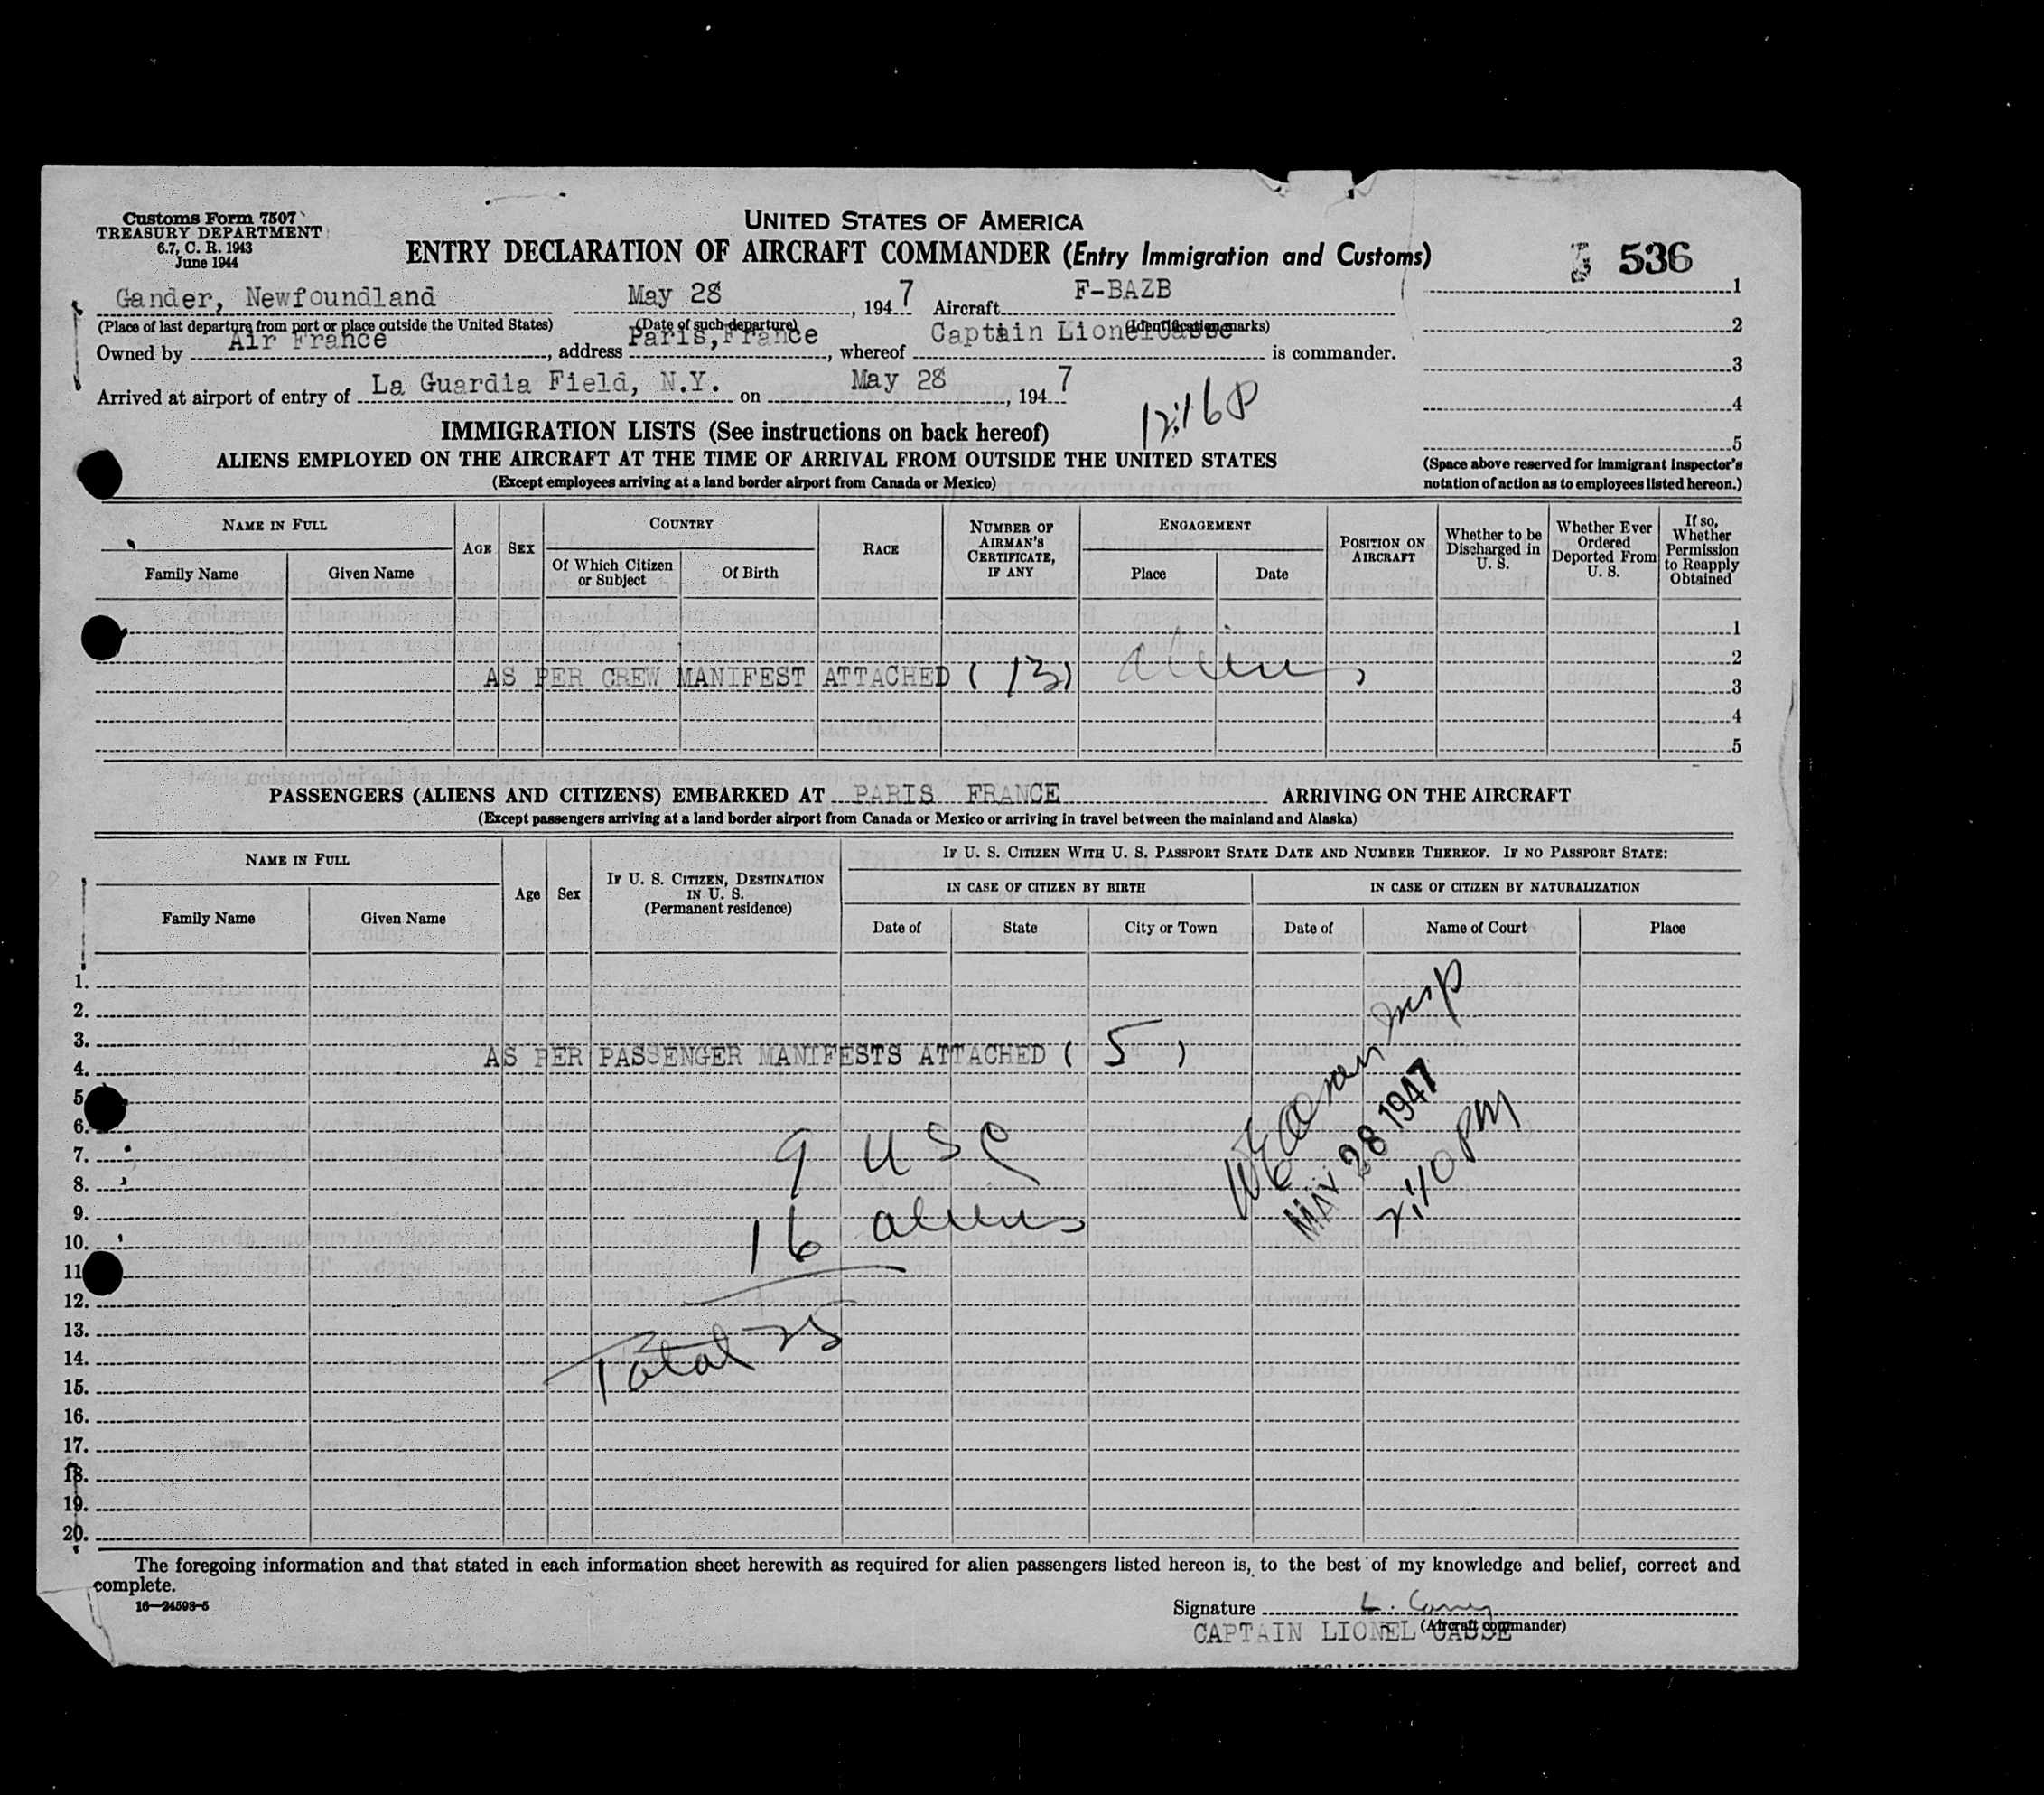 Customs Form 7507
TREASURY DEPARTMENT
6.7, C. R. 1943
June 1944
UNITED STATES OF AMERICA
ENTRY DECLARATION OF AIRCRAFT COMMANDER (Entry Immigration and Customs)
536
Gander, Newfoundland May 28, 1947 Aircraft F-BAZB 1
(Place of last departure from port or place outside the United States) (Date of such departure) (Identification marks) 2
Owned by Air France, address Paris, France, whereof Captain Lionel Casse is commander.
3
Arrived at airport of entry of La Guardia Field, N.Y. on May 28, 1947
4
12:16 P
IMMIGRATION LISTS (See instructions on back hereof)
5
ALIENS EMPLOYED ON THE AIRCRAFT AT THE TIME OF ARRIVAL FROM OUTSIDE THE UNITED STATES
(Except employees arriving at a land border airport from Canada or Mexico)
(Space above reserved for immigrant inspector's
notation of action as to employees listed hereon.)
NAME IN FULL
Family Name
Given Name
AGE
SEX
COUNTRY
Of Which Citizen or Subject
Of Birth
RACE
NUMBER OF AIRMAN'S CERTIFICATE, IF ANY
ENGAGEMENT
Place
Date
POSITION ON AIRCRAFT
Whether to be Discharged in U. S.
Whether Ever Ordered Deported From U. S.
If so, Whether Permission to Reapply Obtained
1
2
AS PER CREW MANIFEST ATTACHED (13) aliens
3
4
5
PASSENGERS (ALIENS AND CITIZENS) EMBARKED AT PARIS FRANCE ARRIVING ON THE AIRCRAFT
(Except passengers arriving at a land border airport from Canada or Mexico or arriving in travel between the mainland and Alaska)
NAME IN FULL
Family Name
Given Name
Age
Sex
IF U. S. CITIZEN, DESTINATION IN U. S.
(Permanent residence)
IF U. S. CITIZEN WITH U. S. PASSPORT STATE DATE AND NUMBER THEREOF. IF NO PASSPORT STATE:
IN CASE OF CITIZEN BY BIRTH
Date of
State
City or Town
IN CASE OF CITIZEN BY NATURALIZATION
Date of
Name of Court
Place
1.
2.
3.
AS PER PASSENGER MANIFESTS ATTACHED ( 5 )
4.
5.
6.
7.
9 USC
8.
9.
16 aliens
10.
11.
12.
13.
Total 25
14.
15.
16.
17.
18.
19.
20.
Insp
MAY 28 1947
2:10 PM
The foregoing information and that stated in each information sheet herewith as required for alien passengers listed hereon is, to the best of my knowledge and belief, correct and
complete.
16—24598-5
Signature L. Casse
(Aircraft commander)
CAPTAIN LIONEL CASSE